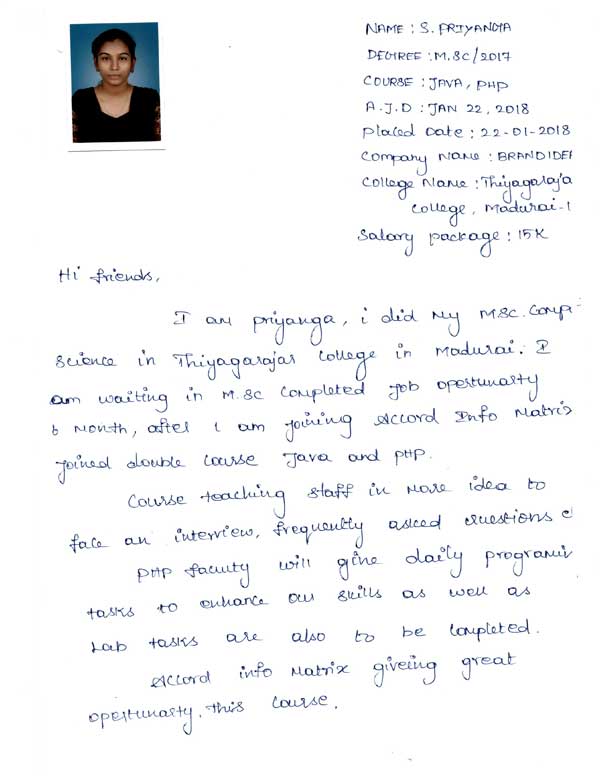 NAME : S. PRIYANGA
DEGREE : M.SC/2017
COURSE : JAVA, PHP
A.J.D : JAN 22, 2018
Placed Date : 22-01-2018
Company Name : BRANDIDEI
College Name : Thiyagaraja
College, Madurai-1
Salary package : 15K
Hi friends,
I am priyanga, i did my MSC. Comp-
Science in Thiyagarajar College in Madurai. I
am waiting in M.SC Completed job opertunarty
6 Month, after i am joining Accord Info Matrix
joined double course Java and PHP.
Course teaching staff in more idea to
face an interview, frequently asked questions
PHP faculty will give daily programi
tasks to enhance our skills as well as
Lab tasks are also to be Completed.
Accord info Matrix giveing great
opertunarty. this course.